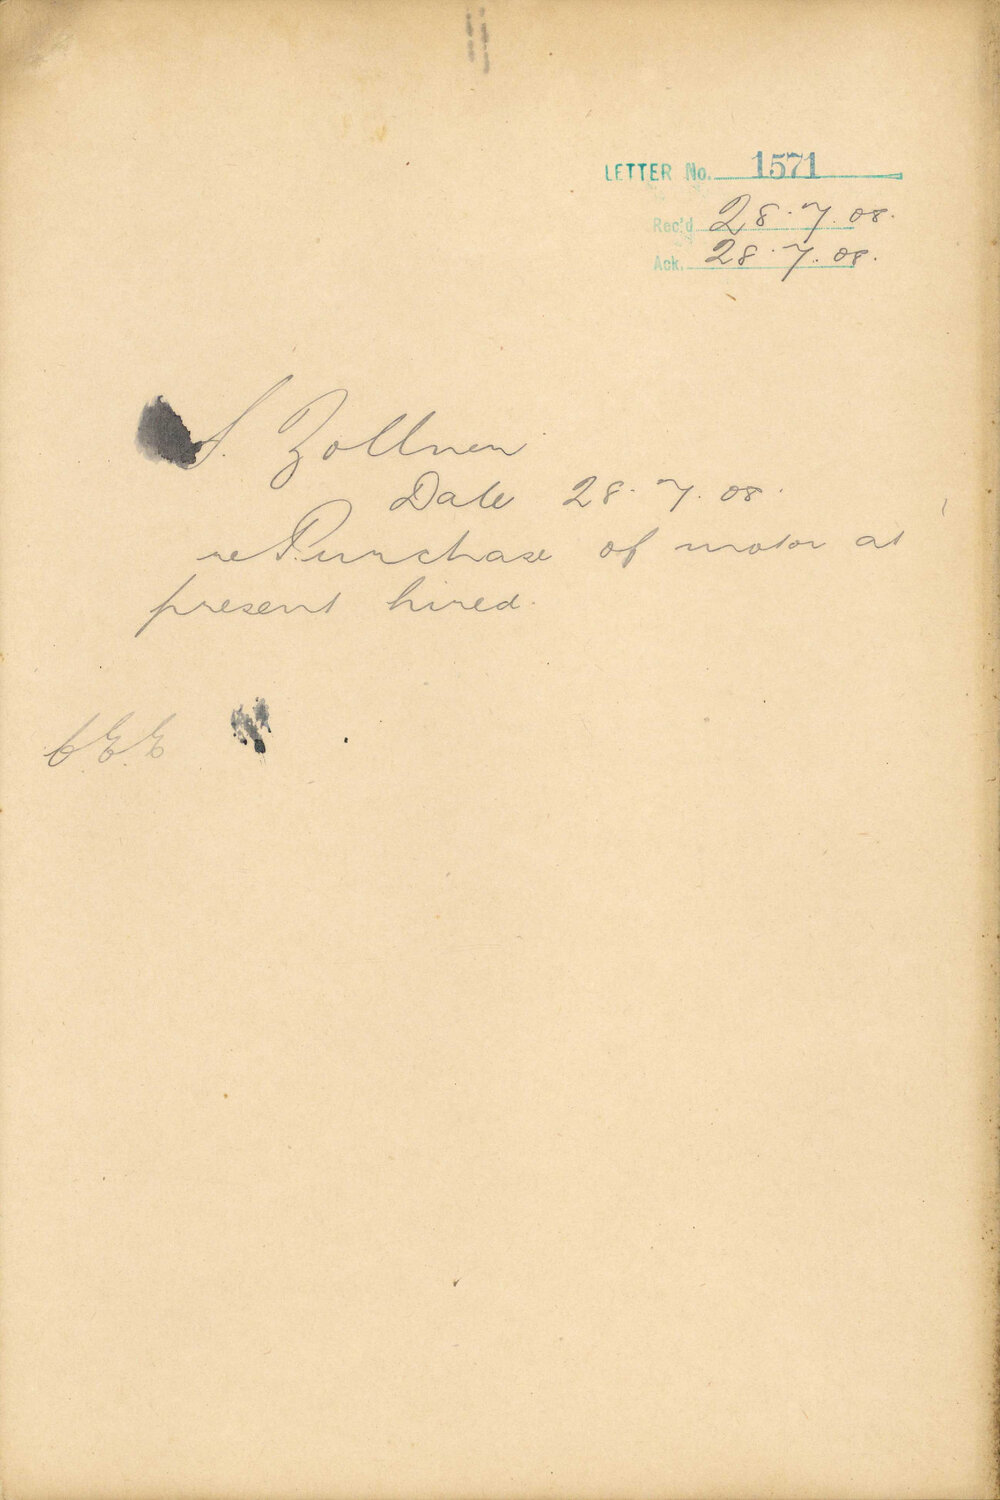 LETTER No. 1571
Rec'd 28.7.08.
Ack. 28.7.08.
S. Zollner
Date 28.7.08.
re Purchase of motor at
present hired.
C.E.E